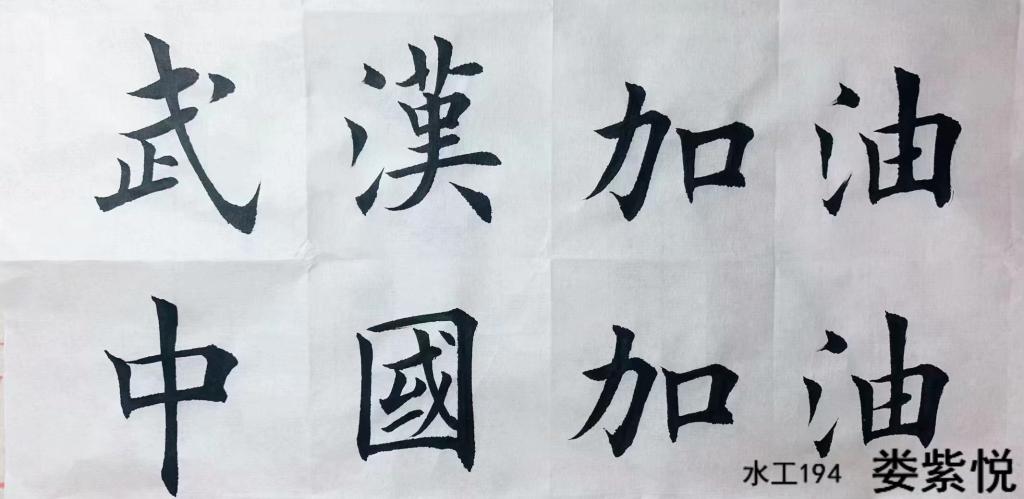 武漢加油
中國加油
水工194 娄紫悦